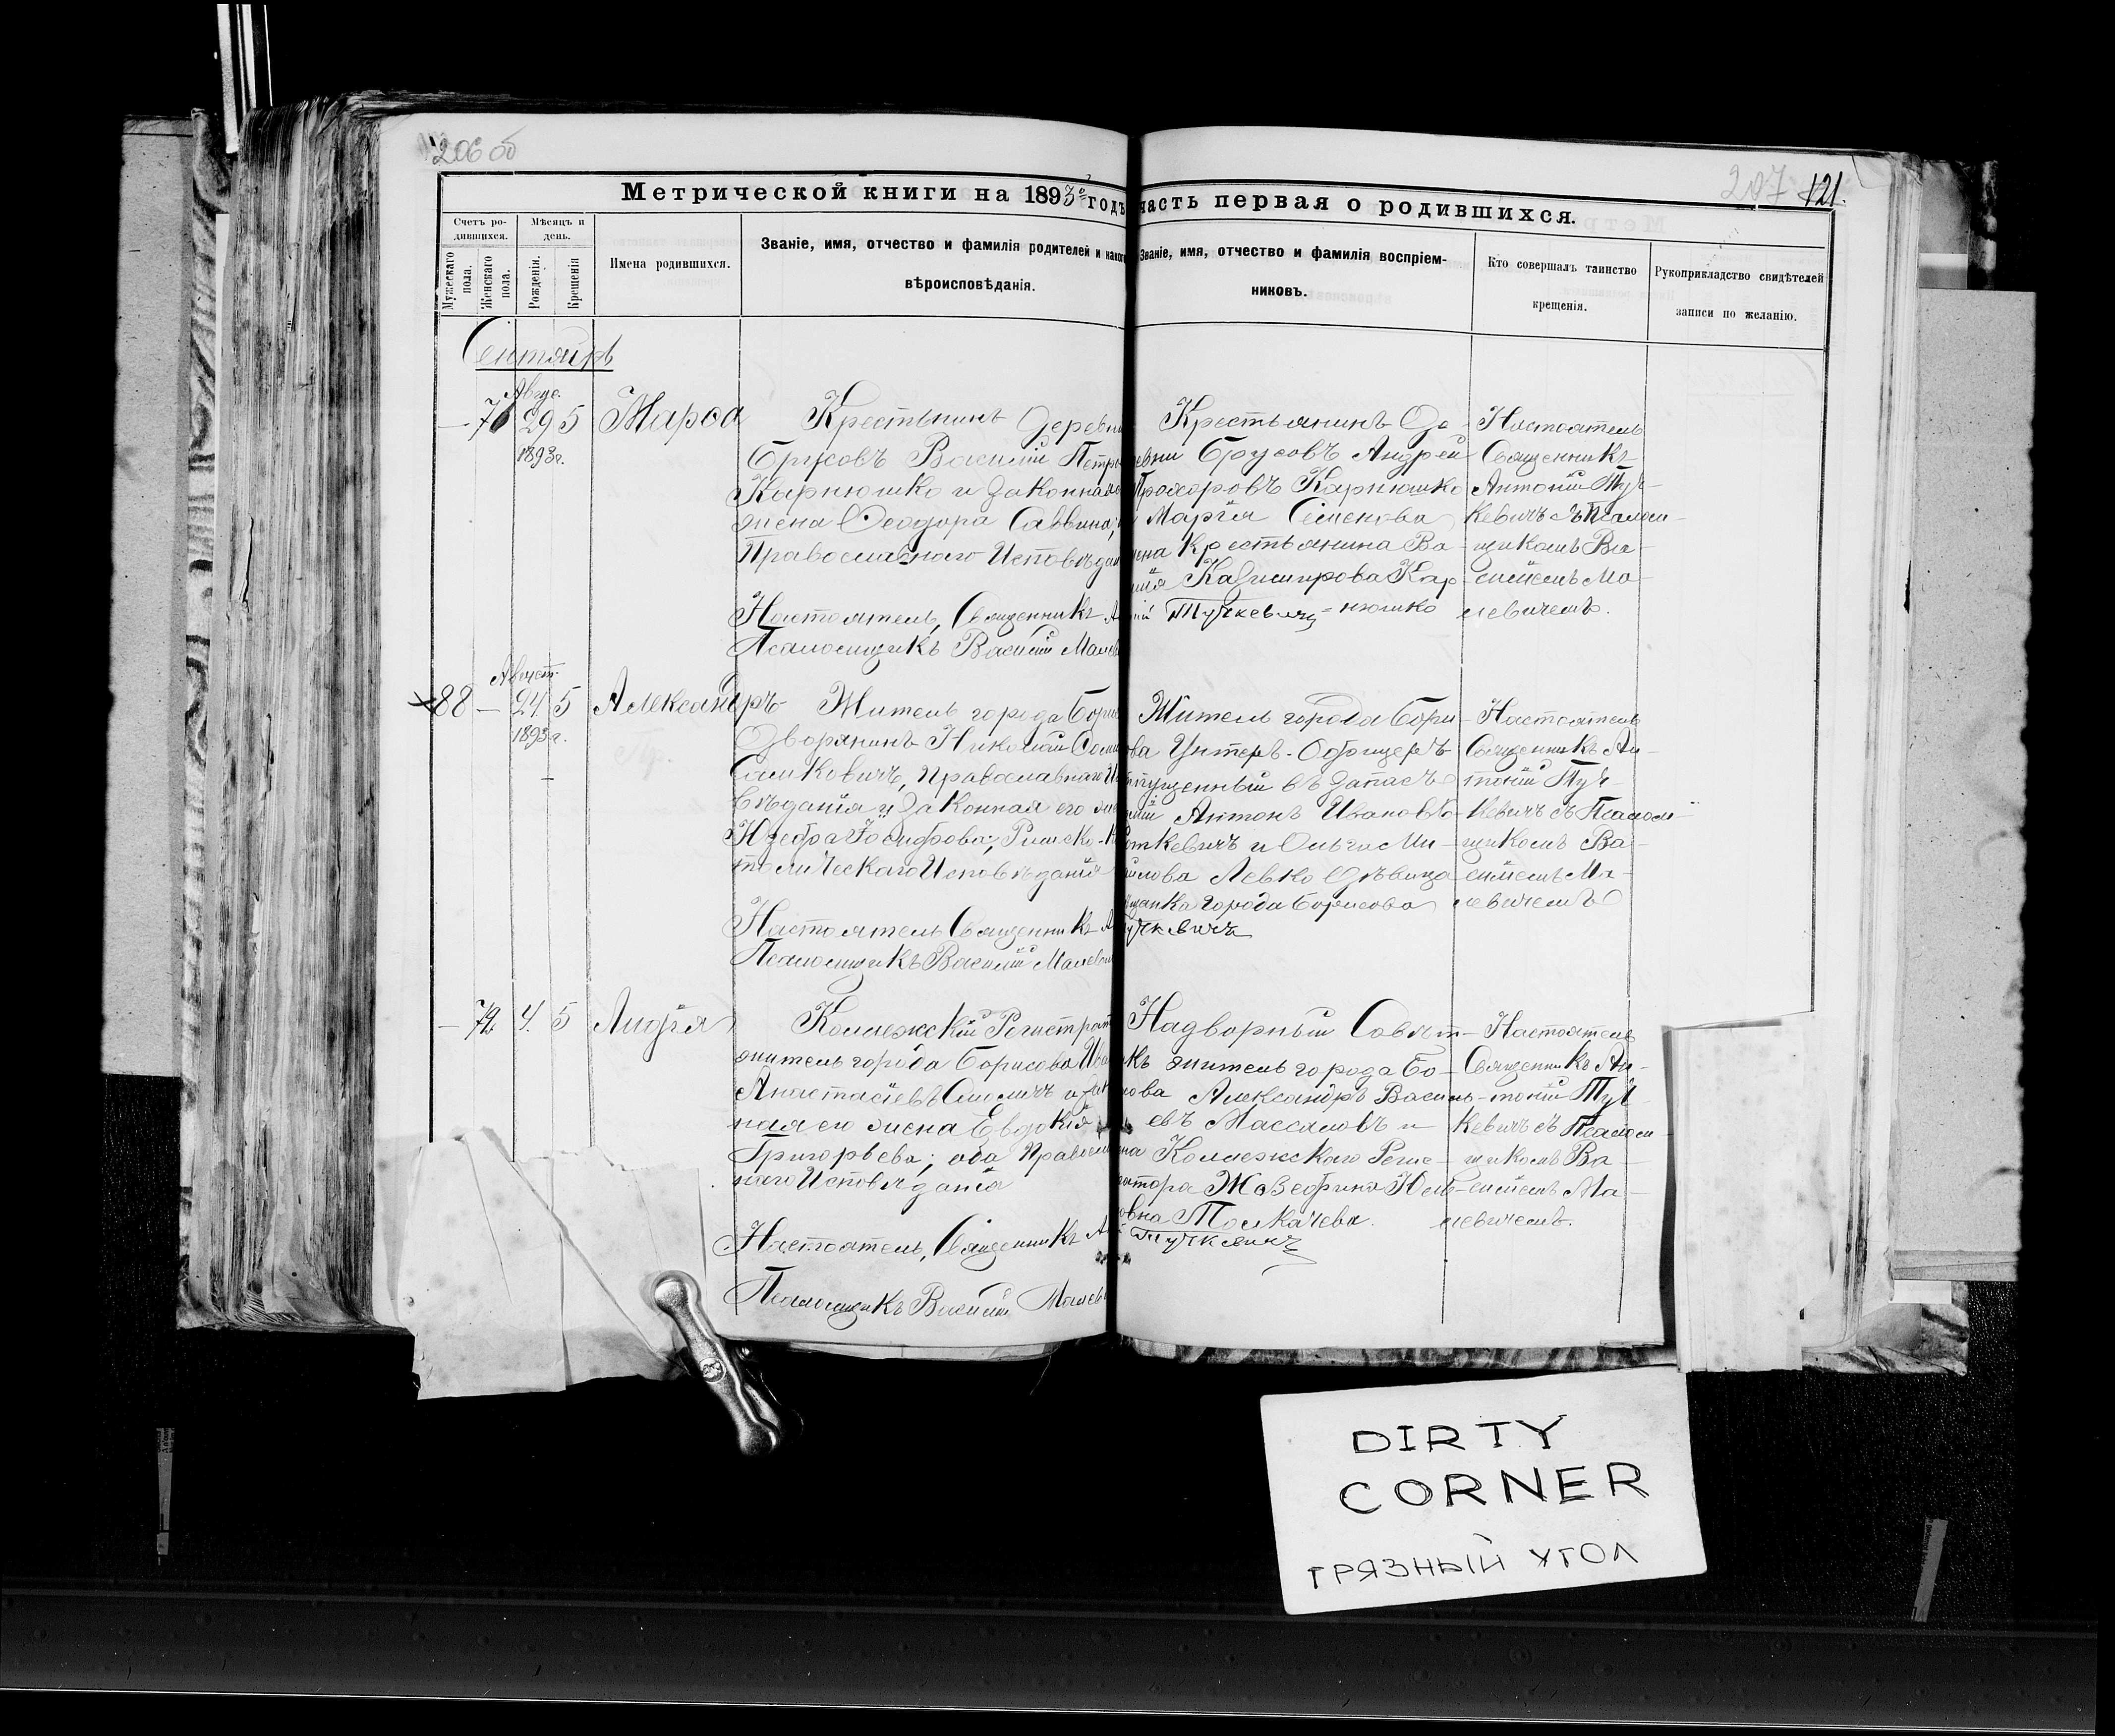 206 об
207 121.
Метрической книги на 1893й годъ часть первая о родившихся.
Счетъ ро-
дившихся.
Мѣсяцъ и
день.
Мужескаго
пола.
Женскаго
пола.
Рожденія.
Крещенія
Имена родившихся.
Званіе, имя, отчество и фамилія родителей и какого
вѣроисповѣданія.
Званіе, имя, отчество и фамилія воспріем-
никовъ.
Кто совершалъ таинство
крещенія.
Рукоприкладство свидѣтелей
записи по желанію.
Сентябрь
Авгус.
— 71 29 5
1893 г.
Марѳа
Крестьянинъ Деревни
Брусовъ Василій Петро
Карнюшко и Законная
жена Ѳеодора Саввина,
Православнаго Исповѣдан
Настоятель, Священникъ
Псаломщикъ Василій Малев
Крестьянинъ Де-
евни Брусовъ Андрей
Прохоровъ Карнюшко
Марія Семенова
ена Крестьянина Ва-
илія Казимирова Кар-
ній Тучкевичъ =нюшко
Настоятель
Священникъ
Антоній Туч-
кевичъ съ Псалом-
щикомъ Ва-
силіемъ Ма-
левичемъ.
Август.
88 — 24 5
1893 г.
Александръ
Житель города Борис
Дворянинъ Николай
Сашковичъ, Православнаго И
вѣданія и Законная его же
Юзефа Іосифова, Римско-К
толическаго Исповѣданія
Настоятель Священникъ А
Псаломщикъ Василій Малев
Житель города Бори-
ова Унтеръ-Офицеръ
пущенный въ Запасъ
Антонъ Ивановъ
откевичъ и Ольга Ми-
йлова Левко Дѣвица
щанка города Борисова
учкевичъ
Настоятель
Священникъ Ан-
тоній Туч-
кевичъ съ Псалом-
щикомъ Ва-
силіемъ Ма-
левичемъ
— 72 4. 5
Лидія
Коллежскій Регистрат
житель города Борисова Ива
Анастасіевъ и зак
ная его жена Евдокія
Григорьева; оба Правосла
наго Исповѣданія
Настоятель, Священникъ Ан
Псаломщикъ Василій Малев
Надворный Совѣт-
къ житель города Бо-
сова Александръ Василь-
евъ Массаловъ и
на Коллежскаго Регис-
атора Жозефина Юль-
овна Толкачева.
Тучкевичъ
Настоятель
Священникъ Ан-
тоній Туч-
кевичъ съ Псалом-
щикомъ Ва-
силіемъ Ма-
левичемъ.
DIRTY
CORNER
ГРЯЗНЫЙ УГОЛ